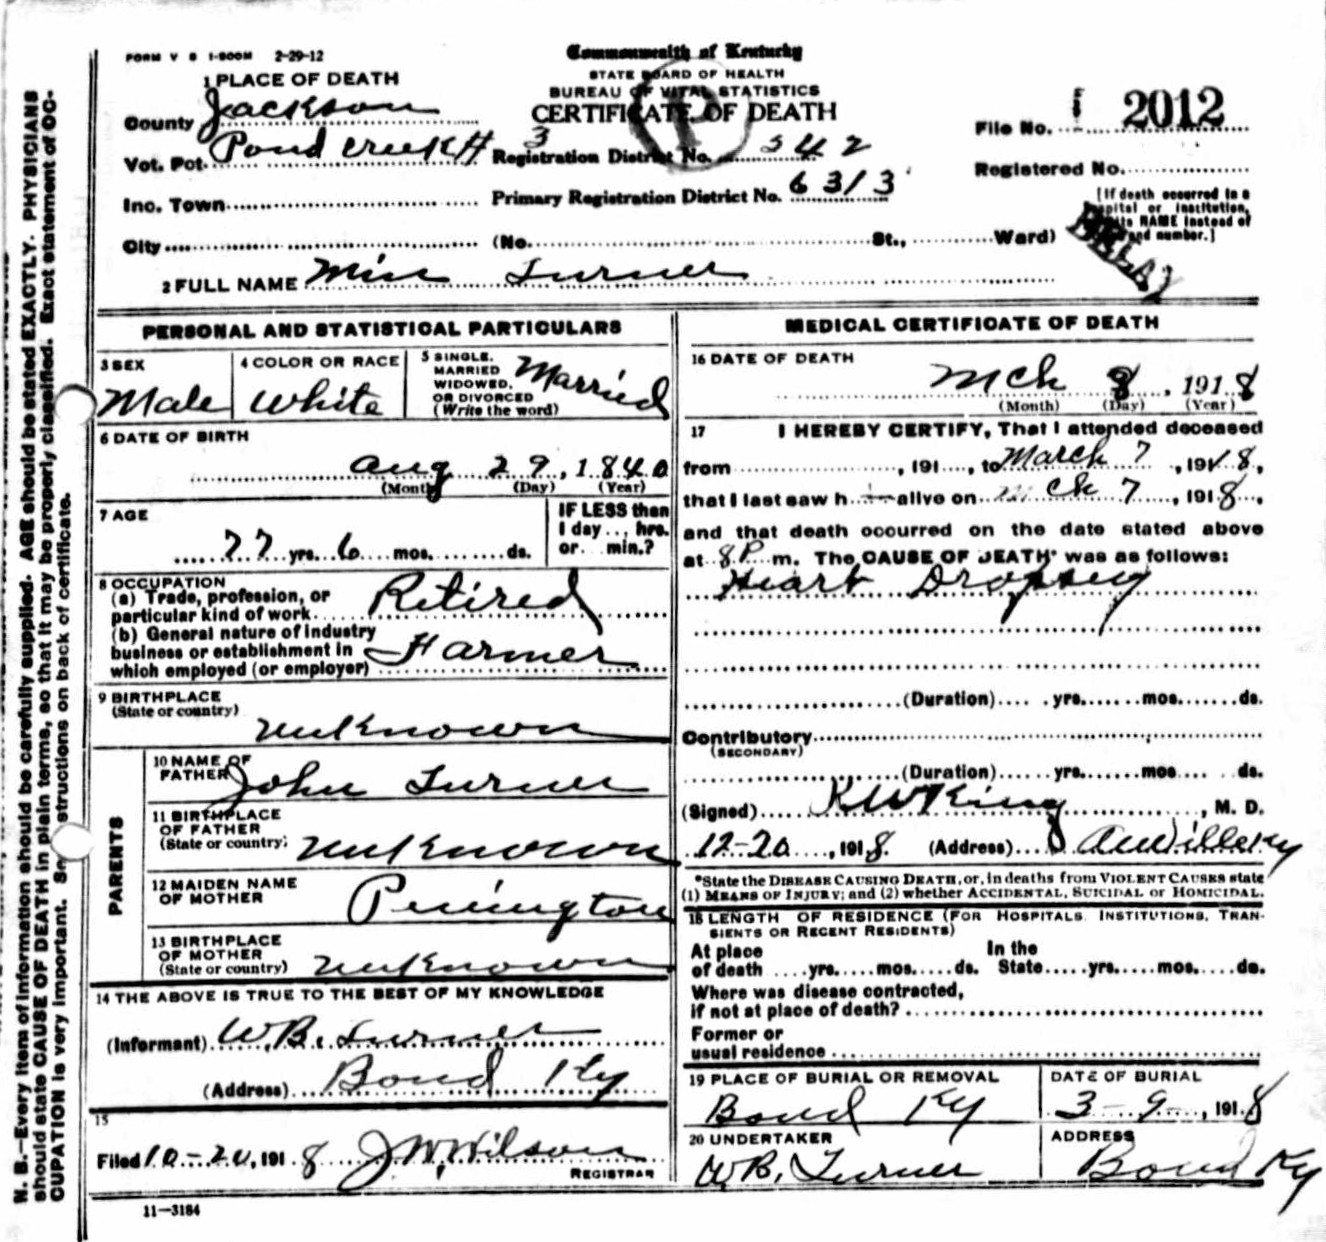 FORM V S 1-500M 2-29-12
Commonwealth of Kentucky
STATE BOARD OF HEALTH
BUREAU OF VITAL STATISTICS
CERTIFICATE OF DEATH
1 PLACE OF DEATH
County Jackson
Vot. Pct. Pond Creek # 3
Inc. Town
City
Registration District No. 342
Primary Registration District No. 6313
(No. St., Ward)
File No. 2012
Registered No.
[If death occurred in a
pital or institution,
its NAME instead of
and number.]
DELAY
2 FULL NAME Turner
PERSONAL AND STATISTICAL PARTICULARS
3 SEX
Male
4 COLOR OR RACE
White
5 SINGLE,
MARRIED
WIDOWED,
OR DIVORCED
(Write the word)
Married
6 DATE OF BIRTH
Aug 29, 1840
(Month) (Day) (Year)
7 AGE
77 yrs. 6 mos. ds.
IF LESS than
1 day .., hrs.
or min.?
8 OCCUPATION
(a) Trade, profession, or
particular kind of work Retired
(b) General nature of industry
business or establishment in
which employed (or employer) Farmer
9 BIRTHPLACE
(State or country)
unknown
PARENTS
10 NAME OF
FATHER John Turner
11 BIRTHPLACE
OF FATHER
(State or country) unknown
12 MAIDEN NAME
OF MOTHER
13 BIRTHPLACE
OF MOTHER
(State or country) unknown
14 THE ABOVE IS TRUE TO THE BEST OF MY KNOWLEDGE
(Informant) W.B. Turner
(Address) Bond Ky
15
Filed 10-20, 1918 J.W. Wilson
REGISTRAR
11-3184
MEDICAL CERTIFICATE OF DEATH
16 DATE OF DEATH
Mch 8, 1918
(Month) (Day) (Year)
17 I HEREBY CERTIFY, That I attended deceased
from , 191 , to March 7, 1918,
that I last saw h alive on Mch 7, 1918,
and that death occurred on the date stated above
at 8 P. m. The CAUSE OF DEATH* was as follows:
Heart Dropsey
(Duration) yrs. mos. ds.
Contributory
(SECONDARY)
(Duration) yrs. mos. ds.
(Signed) King, M. D.
12-20, 1918. (Address)
*State the DISEASE CAUSING DEATH, or, in deaths from VIOLENT CAUSES state
(1) MEANS OF INJURY; and (2) whether ACCIDENTAL, SUICIDAL or HOMICIDAL.
18 LENGTH OF RESIDENCE (FOR HOSPITALS, INSTITUTIONS, TRAN-
SIENTS OR RECENT RESIDENTS)
At place
of death yrs. mos. ds.
In the
State yrs. mos. ds.
Where was disease contracted,
if not at place of death?
Former or
usual residence
19 PLACE OF BURIAL OR REMOVAL
Bond Ky
DATE OF BURIAL
3-9-, 1918
20 UNDERTAKER
W.B. Turner
ADDRESS
Bond Ky
N. B.—Every item of information should be carefully supplied. AGE should be stated EXACTLY. PHYSICIANS
should state CAUSE OF DEATH in plain terms, so that it may be properly classified. Exact statement of OC-
CUPATION is very important. structions on back of certificate.